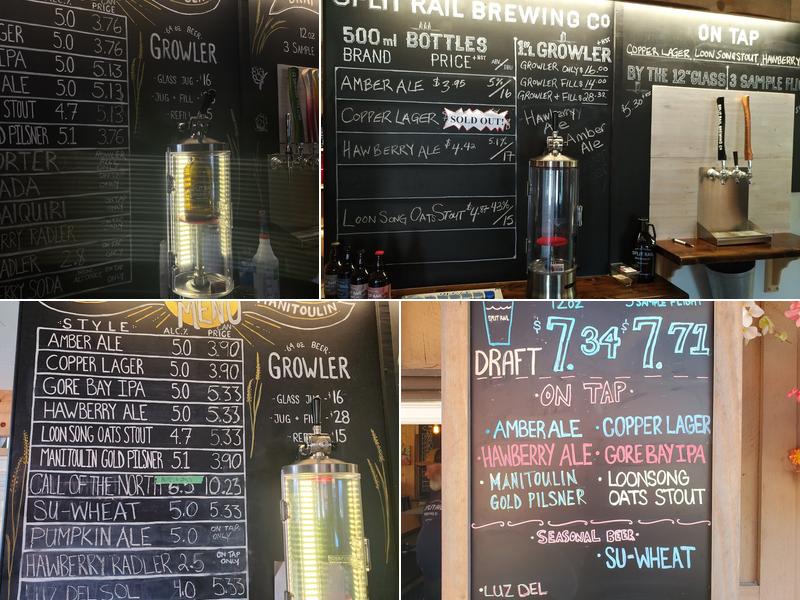 5.0 3.76
5.0 3.76
IPA 5.0 5.13
ALE 5.0 5.13
STOUT 4.7 5.13
D PILSNER 5.1 3.76
ORTER
ADA
AIQUIRI
RRY RADLER
ADLER 2.8
RY SODA
64 OZ BEER
GROWLER
-GLASS JUG-$16
JUG + FILL
-REFILL
12oz
3 SAMPLE
SPLIT RAIL BREWING CO
500 ml BOTTLES
BRAND PRICE+HST
AMBER ALE $3.95 5%/16
COPPER LAGER SOLD OUT!
HAWBERRY ALE $4.42 5.1%/17
LOON SONG OATS STOUT $4.87 4.3%/15
GROWLER
GROWLER ONLY $16.00
GROWLER FILL $14.00
GROWLER + FILL $28.32
Hawberry
Ale
Amber
Ale
ON TAP
COPPER LAGER LOON SONG STOUT, HAWBERRY
BY THE 12oz GLASS 3 SAMPLE FLI
MENU
MANITOULIN
STYLE ALC.% PRICE
AMBER ALE 5.0 3.90
COPPER LAGER 5.0 3.90
GORE BAY IPA 5.0 5.33
HAWBERRY ALE 5.0 5.33
LOON SONG OATS STOUT 4.7 5.33
MANITOULIN GOLD PILSNER 5.1 3.90
CALL OF THE NORTH 6.5 10.23
SU-WHEAT 5.0 5.33
PUMPKIN ALE 5.0 ON TAP ONLY
HAWBERRY RADLER 2.5 ON TAP ONLY
LUZ DEL SOL 4.0 5.33
-64 OZ BEER-
GROWLER
-GLASS JUG-$16
-JUG + FILL $28
-REFILL $15
SPLIT RAIL
12oz 3 SAMPLE FLIGHT
DRAFT $7.34 $7.71
·ON TAP·
·AMBER ALE ·COPPER LAGER
·HAWBERRY ALE ·GORE BAY IPA
·MANITOULIN GOLD PILSNER ·LOONSONG OATS STOUT
·SEASONAL BEER·
·SU-WHEAT
·LUZ DEL